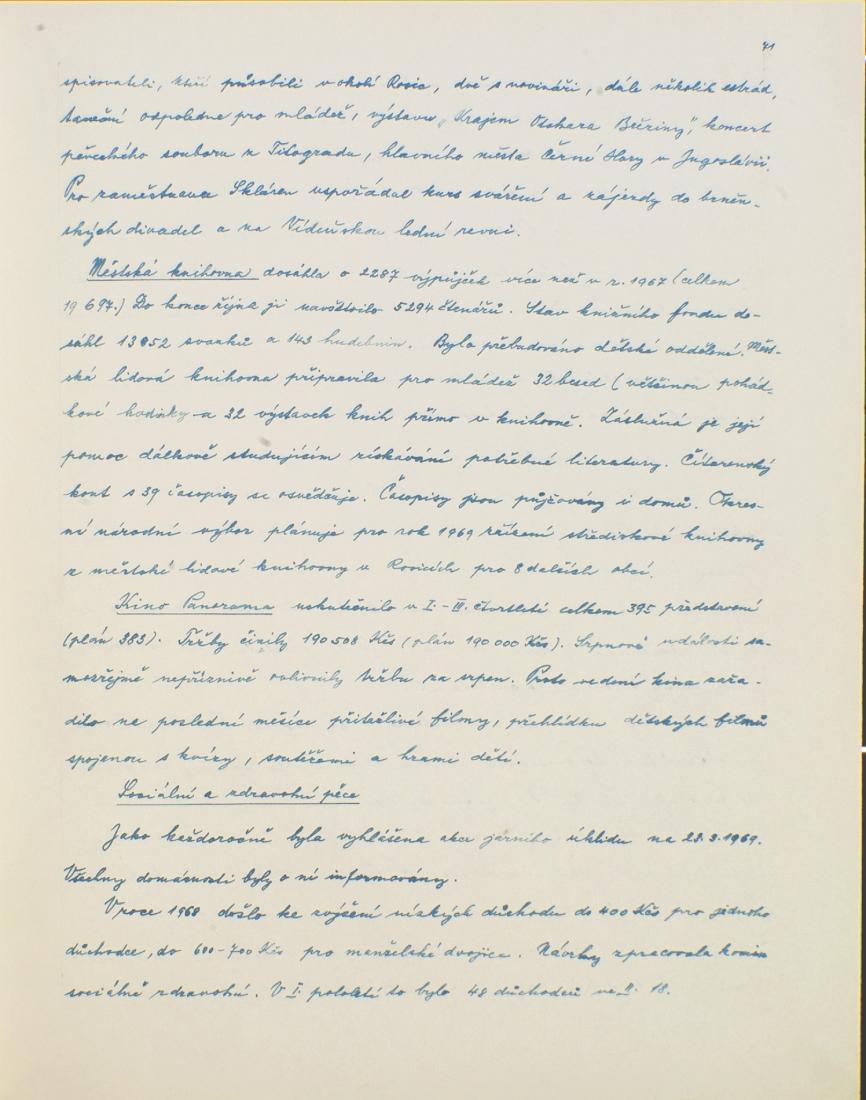 71
spisovateli, kteří působili v okolí Rosic, dvě s novináři, dále několik estrád,
taneční odpoledne pro mládež, výstavu „Krajem Otokara Březiny", koncert
pěveckého souboru z Titogradu, hlavního města Černé Hory v Jugoslávii.
Pro zaměstnance Skláren uspořádal kurs sváření a zájezdy do brněn-
ských divadel a na Vídeňskou lední revui.
Městská knihovna dosáhla o 2287 výpůjček více než v r. 1967 (celkem
19 697.) Do konce října ji navštívilo 5294 čtenářů. Stav knižního fondu do-
sáhl 13852 svazků a 143 hudebnin. Bylo přebudováno dětské oddělení. Měst-
ská lidová knihovna připravila pro mládež 32 besed (většinou pohád-
kové hodinky a 32 výstavek knih přímo v knihovně. Záslužná je její
pomoc dálkově studujícím získávání potřebné literatury. Čítarenský
kout s 39 časopisy se osvědčuje. Časopisy jsou půjčovány i domů. Okres-
ní národní výbor plánuje pro rok 1969 zřízení střediskové knihovny
z městské lidové knihovny v Rosicích pro 8 dalších obcí.
Kino Panorama uskutečnilo v I.-III. čtvrtletí celkem 395 představení
(plán 383). Tržby činily 190 508 Kčs (plán 190 000 Kčs). Srpnové události sa-
mozřejmě nepříznivě ovlivnily tržbu za srpen. Proto vedení kina zařa-
dilo na poslední měsíce přitažlivé filmy, přehlídku dětských filmů
spojenou s kvízy, soutěžemi a hrami dětí.
Sociální a zdravotní péče
Jako každoročně byla vyhlášena akce jarního úklidu na 23.3.1969.
Všechny domácnosti byly o ní informovány.
V roce 1968 došlo ke zvýšení nízkých důchodů do 400 Kčs pro jednoho
důchodce, do 600-700 Kčs pro manželské dvojice. Návrhy zpracovala komise
sociálně zdravotní. V I. pololetí to bylo 48 důchodců ve II. 18.